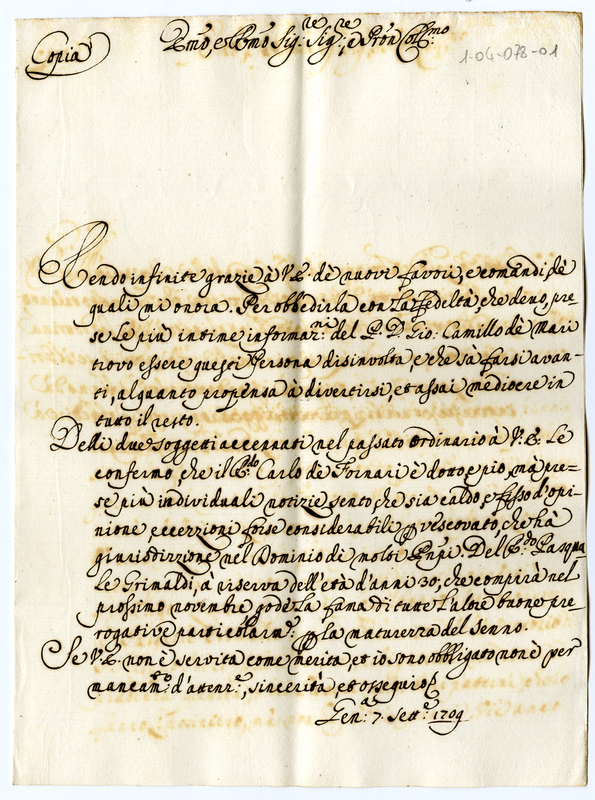 Copia
Emo, e Rmo Sig.re Sig.re, e Prōn Coll.mo
1-04-078-01
Rendo infinite grazie à V.E. dè nuovi favori, e comandi, dè
quali mi onora. Per obbedirla con la Fedeltà, che devo, pre=
se le più intime informaz.ni del P.D. Gio. Camillo dè Mari
trovo essere questi Persona disinvolta, e che sa farsi avan=
ti, alquanto propensa à divertirsi, et assai mediocre in
tutto il resto.
Delli due soggetti accennati nel passato Ordinario à V.E. Le
confermo, che il P.do Carlo de Fornari è dotto, e pio, mà pre=
se più individuali notizie, sento, che sia caldo, e fisso d'opi=
nione, eccezzioni forse considerabili p vescovato, che hà
giurisdizzione nel Dominio di molti Pnpi. Del P.do Pasqua
le Grimaldi, à riserva dell'età d'anni 30, che compirà nel
prossimo novembre, gode la fama di tutte l'altre buone pre=
rogative particolarm.e p la maturezza del senno.
Se V.E. non è servita come merita, et io sono obbligato non è per
mancam.to d'attenz.e, sincerità et ossequio
Gen.a 7. Sett.e 1709